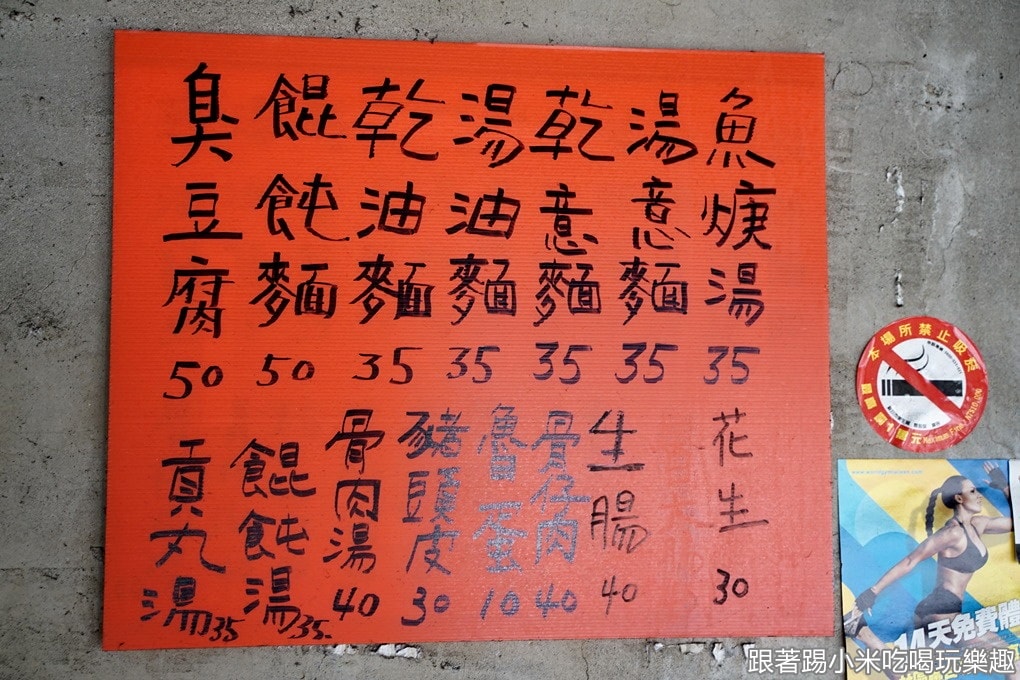 魚焿湯 35
湯意麵 35
乾意麵 35
湯油麵 35
乾油麵 35
餛飩麵 50
臭豆腐 50
花生 30
生腸 40
骨仔肉 40
魯蛋 10
豬頭皮 30
骨肉湯 40
餛飩湯 35
貢丸湯 35
本場所禁止吸菸
14天免費體
跟著踢小米吃喝玩樂趣